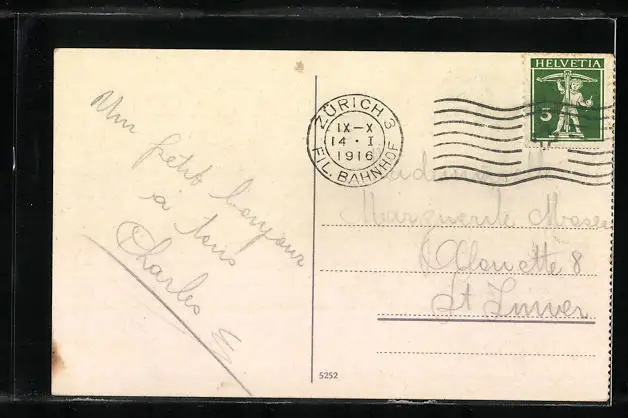 Un
petit bonjour
à tous
Charles
HELVETIA
5
ZÜRICH 3
IX-X
14 · I
1916
FIL. BAHNHOF
Marguerite
Alouette 8
St Imier
5252